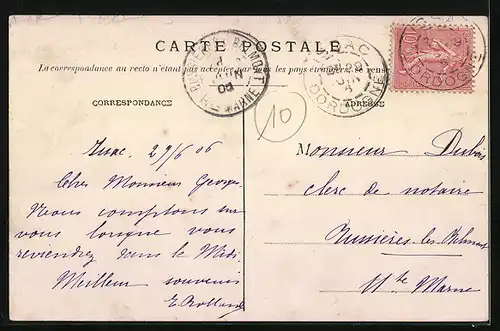 CARTE POSTALE
La correspondance au recto n'étant pas acceptée par tous les pays étrangers, se rense
CORRESPONDANCE
ADRESSE
10
DORDOGNE
DORDOGNE
Hte MARNE
Issac 29/6 06
Cher Monsieur Georges
Nous comptons sur
vous lorsque vous
reviendrez dans le Midi
Meilleur souvenir
E. Rolland
Monsieur Dubois
clerc de notaire
Bussières-les-Belmont
Hte Marne